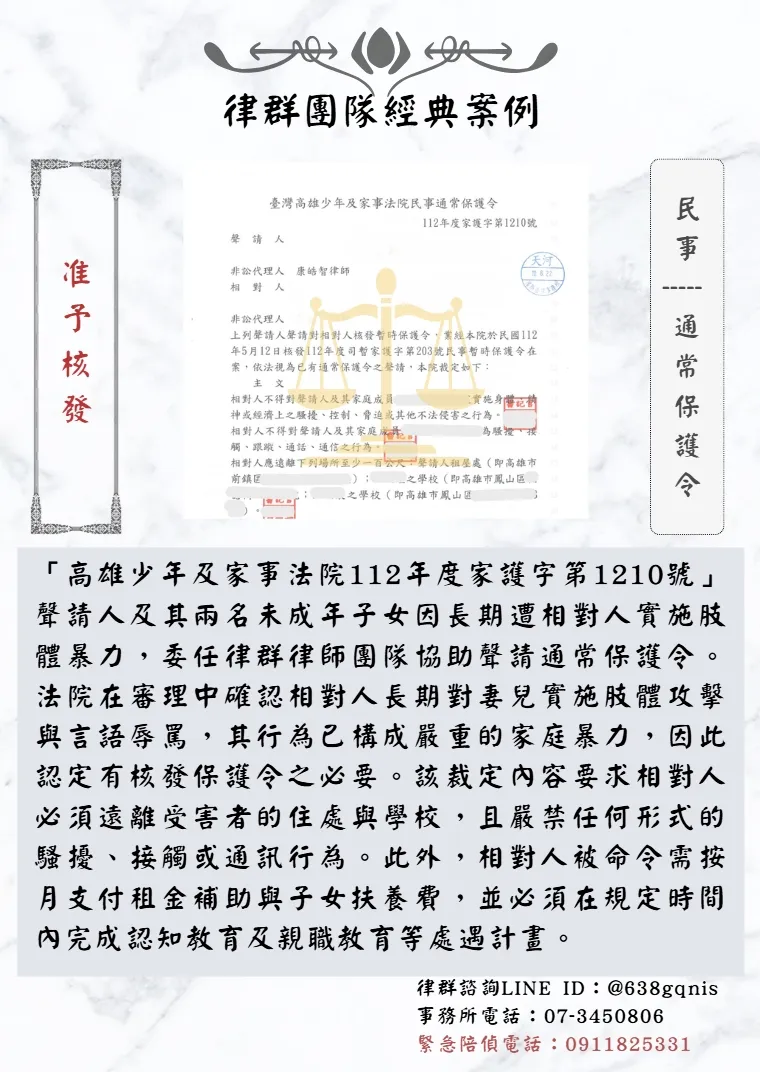 律群團隊經典案例
准予核發
臺灣高雄少年及家事法院民事通常保護令
112年度家護字第1210號
聲請人
非訟代理人 康皓智律師
相對人
非訟代理人
上列聲請人聲請對相對人核發暫時保護令，案經本院於民國112
年5月12日核發112年度司暫家護字第203號民事暫時保護令在
案，依法視為已有通常保護令之聲請，本院裁定如下：
主文
相對人不得對聲請人及其家庭成員 實施身體、精
神或經濟上之騷擾、控制、脅迫或其他不法侵害之行為。
相對人不得對聲請人及其家庭成員 為騷擾、接
觸、跟蹤、通話、通信之行為。
相對人應遠離下列場所至少一百公尺：聲請人租屋處（即高雄市
前鎮區 ）； 之學校（即高雄市鳳山區
； 之學校（即高雄市鳳山區
）。
天河
民事-----通常保護令
「高雄少年及家事法院112年度家護字第1210號」
聲請人及其兩名未成年子女因長期遭相對人實施肢
體暴力，委任律群律師團隊協助聲請通常保護令。
法院在審理中確認相對人長期對妻兒實施肢體攻擊
與言語辱罵，其行為已構成嚴重的家庭暴力，因此
認定有核發保護令之必要。該裁定內容要求相對人
必須遠離受害者的住處與學校，且嚴禁任何形式的
騷擾、接觸或通訊行為。此外，相對人被命令需按
月支付租金補助與子女扶養費，並必須在規定時間
內完成認知教育及親職教育等處遇計畫。
律群諮詢LINE ID：@638gqnis
事務所電話：07-3450806
緊急陪偵電話：0911825331